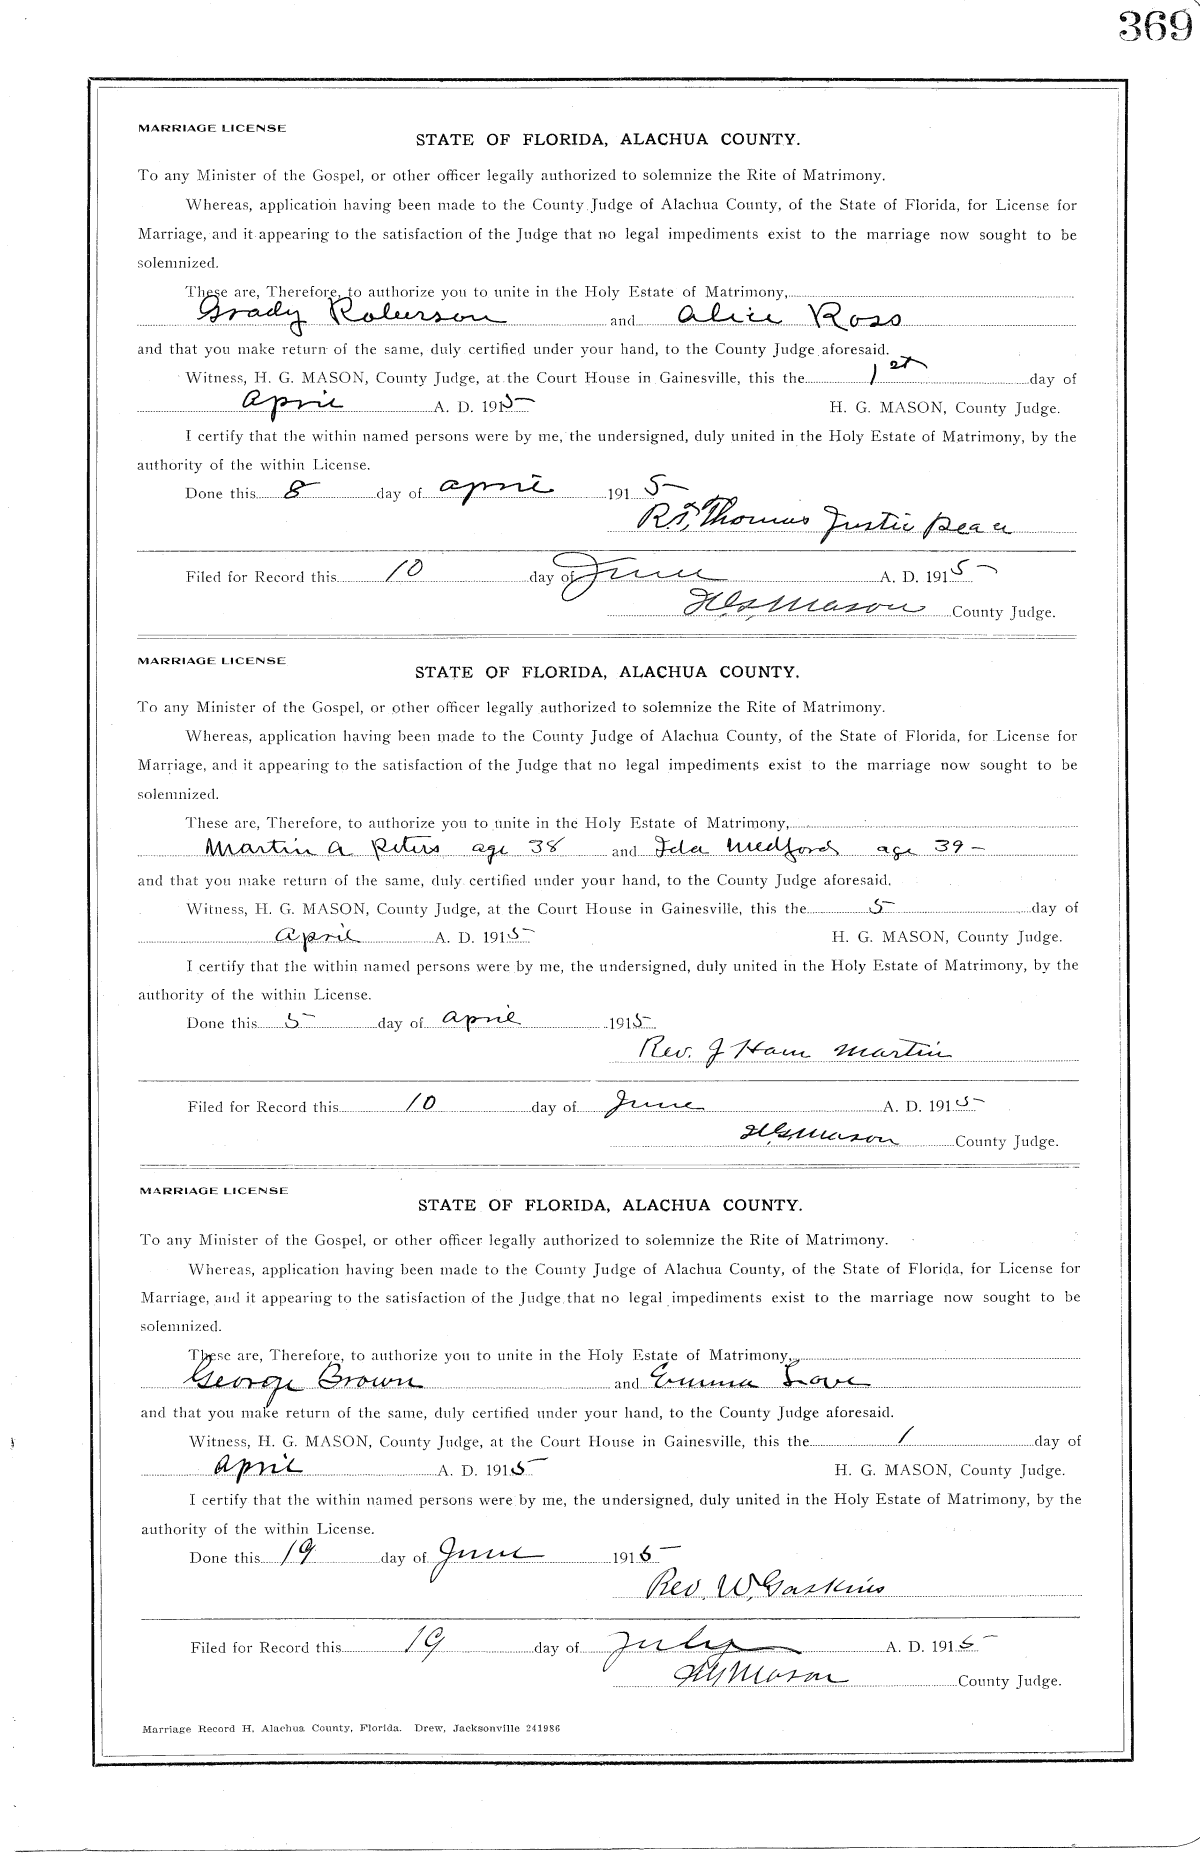 369
MARRIAGE LICENSE
STATE OF FLORIDA, ALACHUA COUNTY.
To any Minister of the Gospel, or other officer legally authorized to solemnize the Rite of Matrimony.
Whereas, application having been made to the County Judge of Alachua County, of the State of Florida, for License for
Marriage, and it appearing to the satisfaction of the Judge that no legal impediments exist to the marriage now sought to be
solemnized.
These are, Therefore, to authorize you to unite in the Holy Estate of Matrimony,
Grady Roberson and Alice Ross
and that you make return of the same, duly certified under your hand, to the County Judge aforesaid.
Witness, H. G. MASON, County Judge, at the Court House in Gainesville, this the 1st day of
April A. D. 1915 H. G. MASON, County Judge.
I certify that the within named persons were by me, the undersigned, duly united in the Holy Estate of Matrimony, by the
authority of the within License.
Done this 8 day of April 1915
R.F. Thomas Justic peace
Filed for Record this 10 day of June A. D. 1915
H.G. Mason County Judge.
MARRIAGE LICENSE
STATE OF FLORIDA, ALACHUA COUNTY.
To any Minister of the Gospel, or other officer legally authorized to solemnize the Rite of Matrimony.
Whereas, application having been made to the County Judge of Alachua County, of the State of Florida, for License for
Marriage, and it appearing to the satisfaction of the Judge that no legal impediments exist to the marriage now sought to be
solemnized.
These are, Therefore, to authorize you to unite in the Holy Estate of Matrimony,
Martin A Peters age 38 and Ida Medford age 39-
and that you make return of the same, duly certified under your hand, to the County Judge aforesaid.
Witness, H. G. MASON, County Judge, at the Court House in Gainesville, this the 5 day of
April A. D. 1915 H. G. MASON, County Judge.
I certify that the within named persons were by me, the undersigned, duly united in the Holy Estate of Matrimony, by the
authority of the within License.
Done this 5 day of April 1915
Rev. J Ham Martin
Filed for Record this 10 day of June A. D. 1915
H.G. Mason County Judge.
MARRIAGE LICENSE
STATE OF FLORIDA, ALACHUA COUNTY.
To any Minister of the Gospel, or other officer legally authorized to solemnize the Rite of Matrimony.
Whereas, application having been made to the County Judge of Alachua County, of the State of Florida, for License for
Marriage, and it appearing to the satisfaction of the Judge that no legal impediments exist to the marriage now sought to be
solemnized.
These are, Therefore, to authorize you to unite in the Holy Estate of Matrimony,
George Brown and Emma Love
and that you make return of the same, duly certified under your hand, to the County Judge aforesaid.
Witness, H. G. MASON, County Judge, at the Court House in Gainesville, this the 1 day of
April A. D. 1915 H. G. MASON, County Judge.
I certify that the within named persons were by me, the undersigned, duly united in the Holy Estate of Matrimony, by the
authority of the within License.
Done this 19 day of June 1915
Rev. W. Gaskins
Filed for Record this 19 day of July A. D. 1915
H.G. Mason County Judge.
Marriage Record H, Alachua County, Florida. Drew, Jacksonville 241986